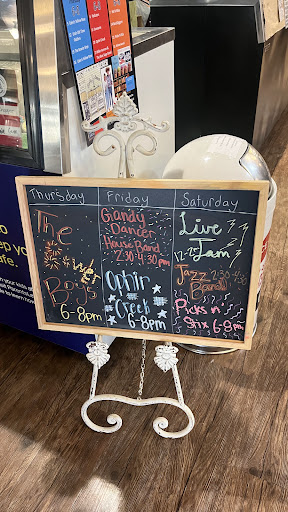 Thursday
The
Boys
6-8pm
Friday
Gandy
Dancer
House Band
2:30-4:30 pm
Ophir
Creek
6-8pm
Saturday
Live
Jam
12-2
Jazz 2:30-4:30
Band
Picks n
Stix 6-8pm